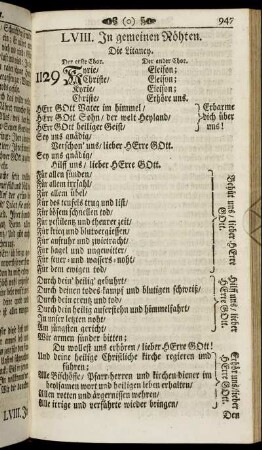 (0) 947
LVIII. In gemeinen Nöhten.
Die Litaney.
Der erste Chor. Der ander Chor.
1129 Kyrie/ Eleison;
Christe/ Eleison;
Kyrie/ Eleison;
Christe/ Erhöre uns.
HErr GOtt Vater im himmel/
HErr GOtt Sohn/ der welt Heyland/
HErr GOtt heiliger Geist/
Erbarme dich über uns!
Sey uns gnädig/
Verschon' uns/ lieber HErre GOtt.
Sey uns gnädig/
Hilff uns/ lieber HErre GOtt.
Für allen sünden/
Für allem irrsahl/
Für allem übel/
Für des teufels trug und list/
Für bösem schnellen tod/
Für pestilentz und theurer zeit/
Für krieg und blutvergiessen/
Für aufruhr und zwietracht/
Für hagel und ungewitter/
Für feuer- und wassers-noht/
Für dem ewigen tod/
Behüt uns/ lieber HErre GOtt.
Durch dein' heilig' gebuhrt/
Durch deinen todes-kampf und blutigen schweiß/
Durch dein creutz und tod/
Durch dein heilig auferstehn und himmelfahrt/
In unser letzten noht/
Am jüngsten gericht/
Hilff uns/ lieber HErre GOtt.
Wir armen sünder bitten;
Du wollest uns erhören/ lieber HErre GOtt!
Und deine heilige Christliche kirche regieren und
führen;
Alle Bischöffe/ Pfarr-herren und kirchen-diener im
heilsamen wort und heiligen leben erhalten/
Allen rotten und ärgernissen wehren/
Alle irrige und verführte wieder bringen/
Erhör uns/ lieber HErre GOtt.
Den